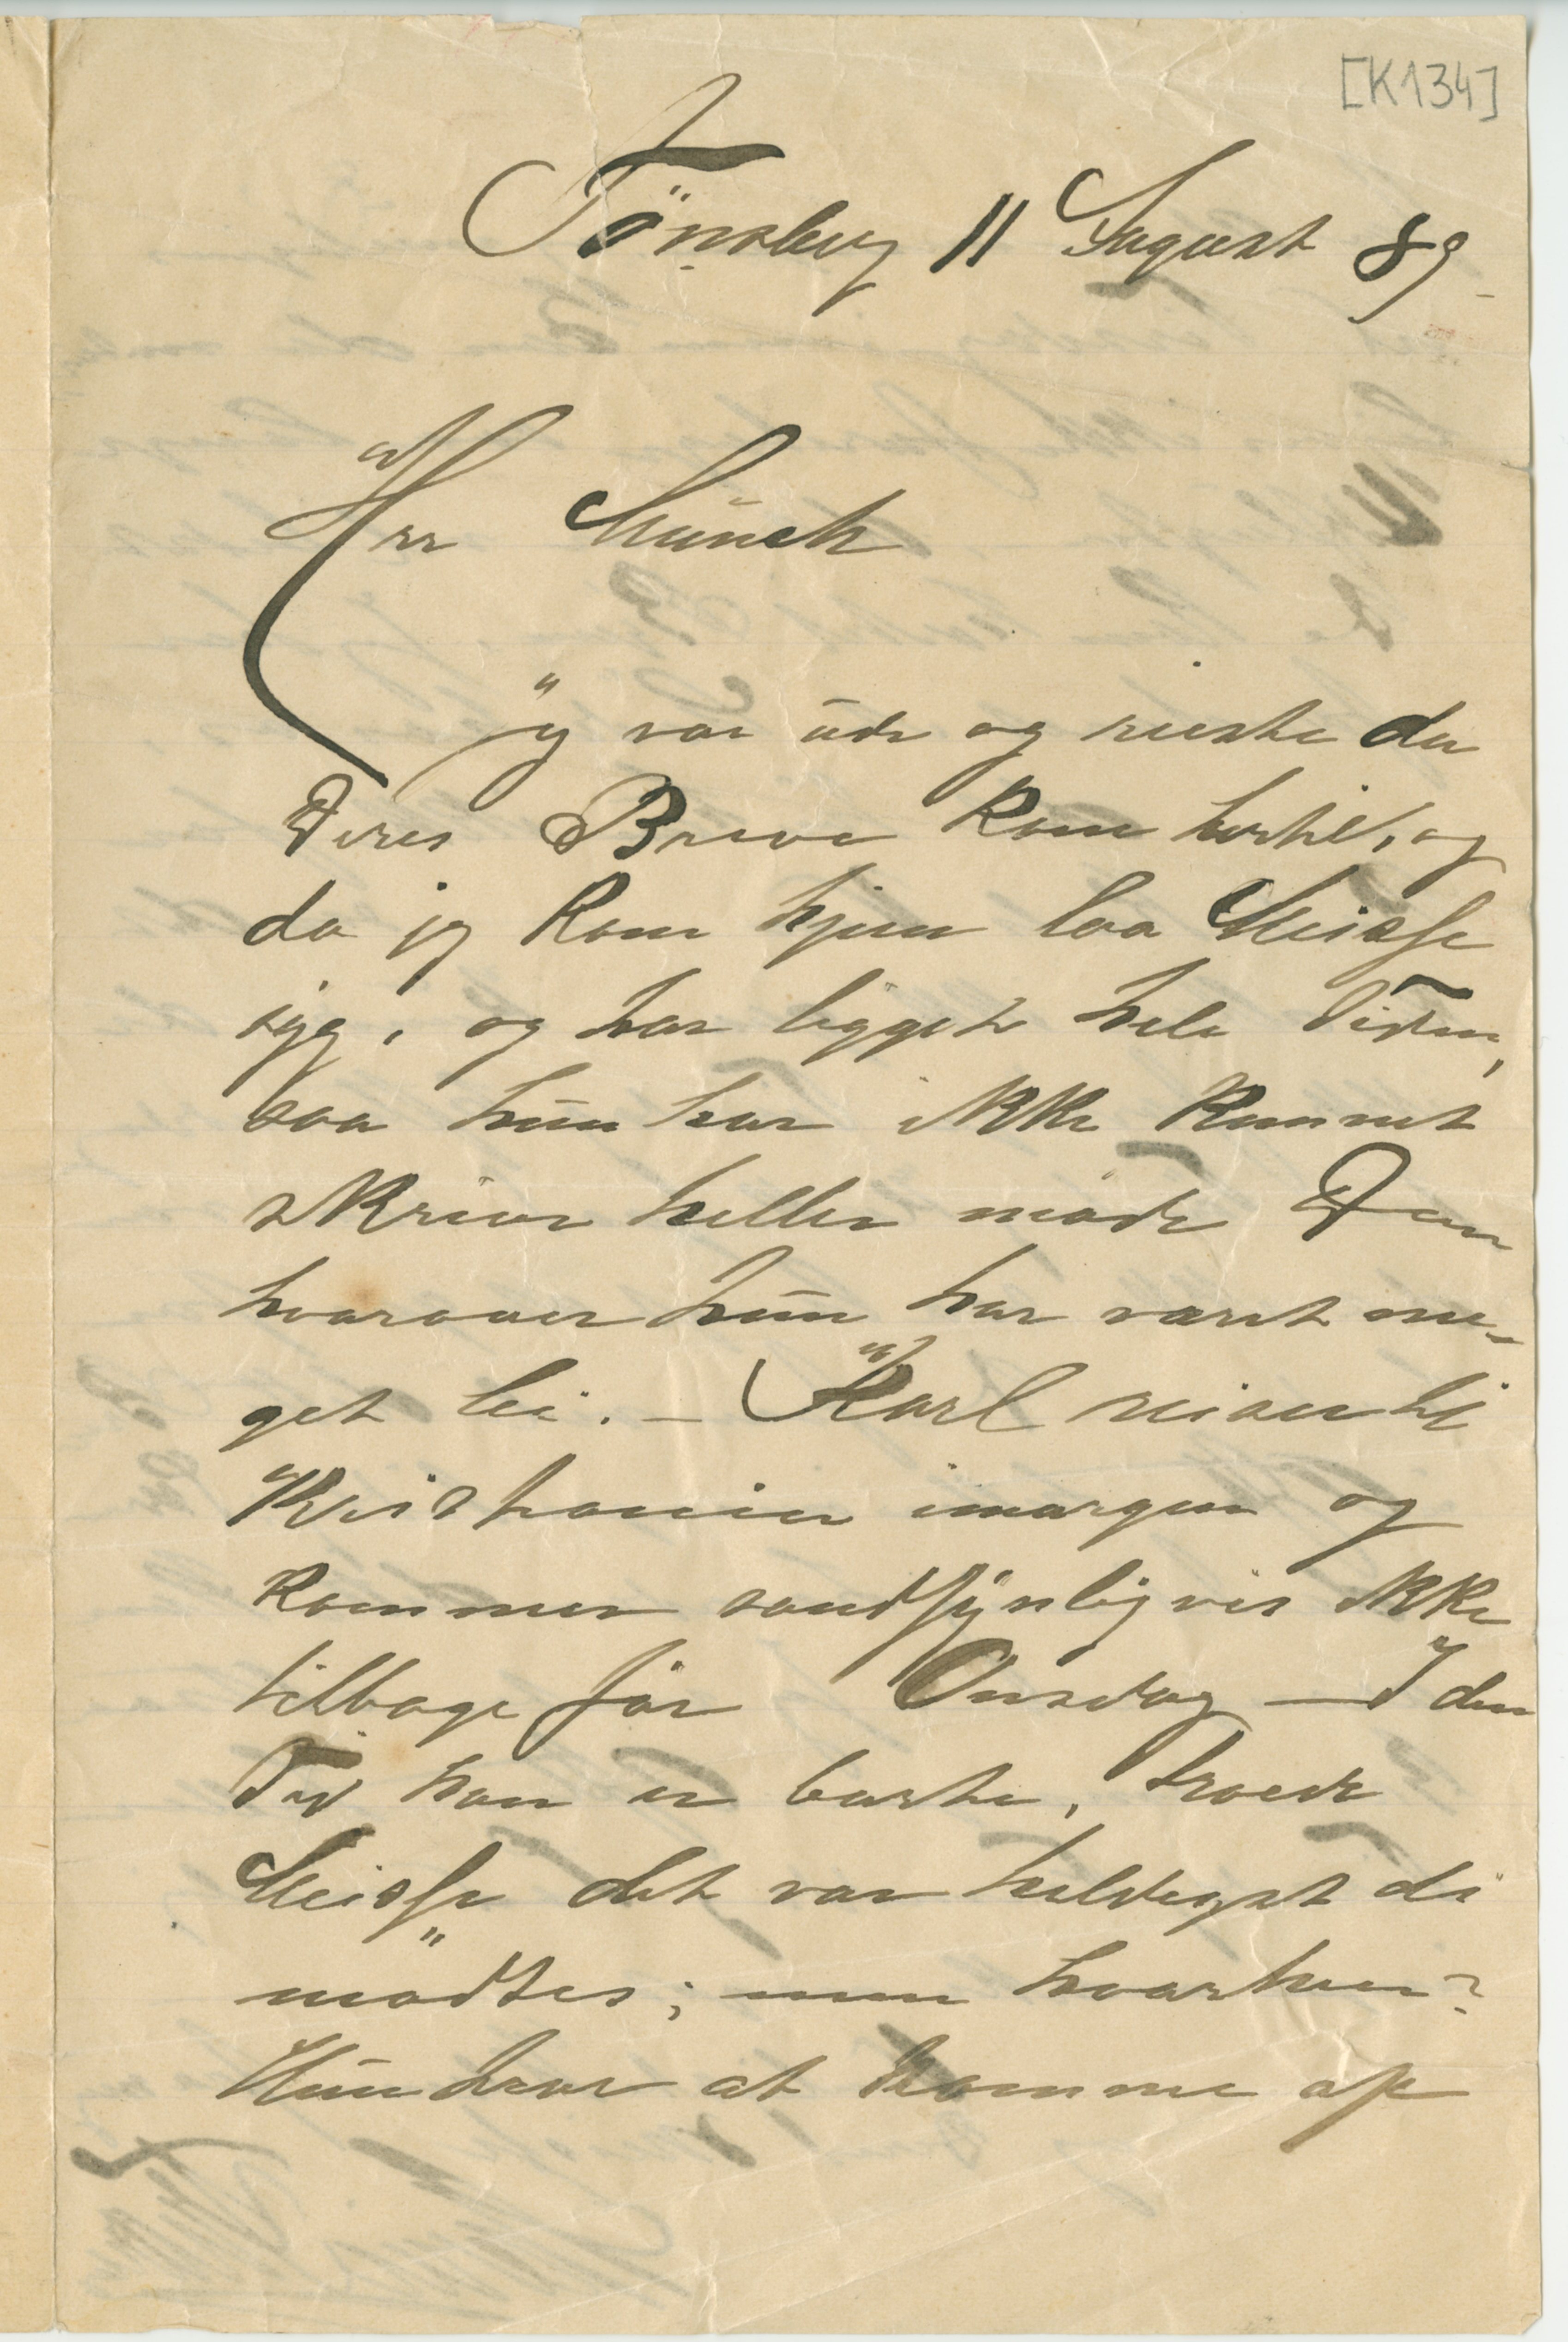 [K134]
Tönsberg 11 August 89
Herr Münch
jeg var ude og reiste da
Deres Breve kom hertil, og
da jeg kom hjem laa Meisse
syg, og har ligget hele Tiden,
saa hun har ikke kunnet
skrive heller møde Dem
hvorover hun har været me-
get lei. – Karl reiser til
Kristiania imorgen og
kommer sandsynligvis ikke
tilbage før Onsdag — I den
Tid han er borte, troede
Meisse det var heldigst de
mødtes; men hvorhen?
Hun tror at komme op